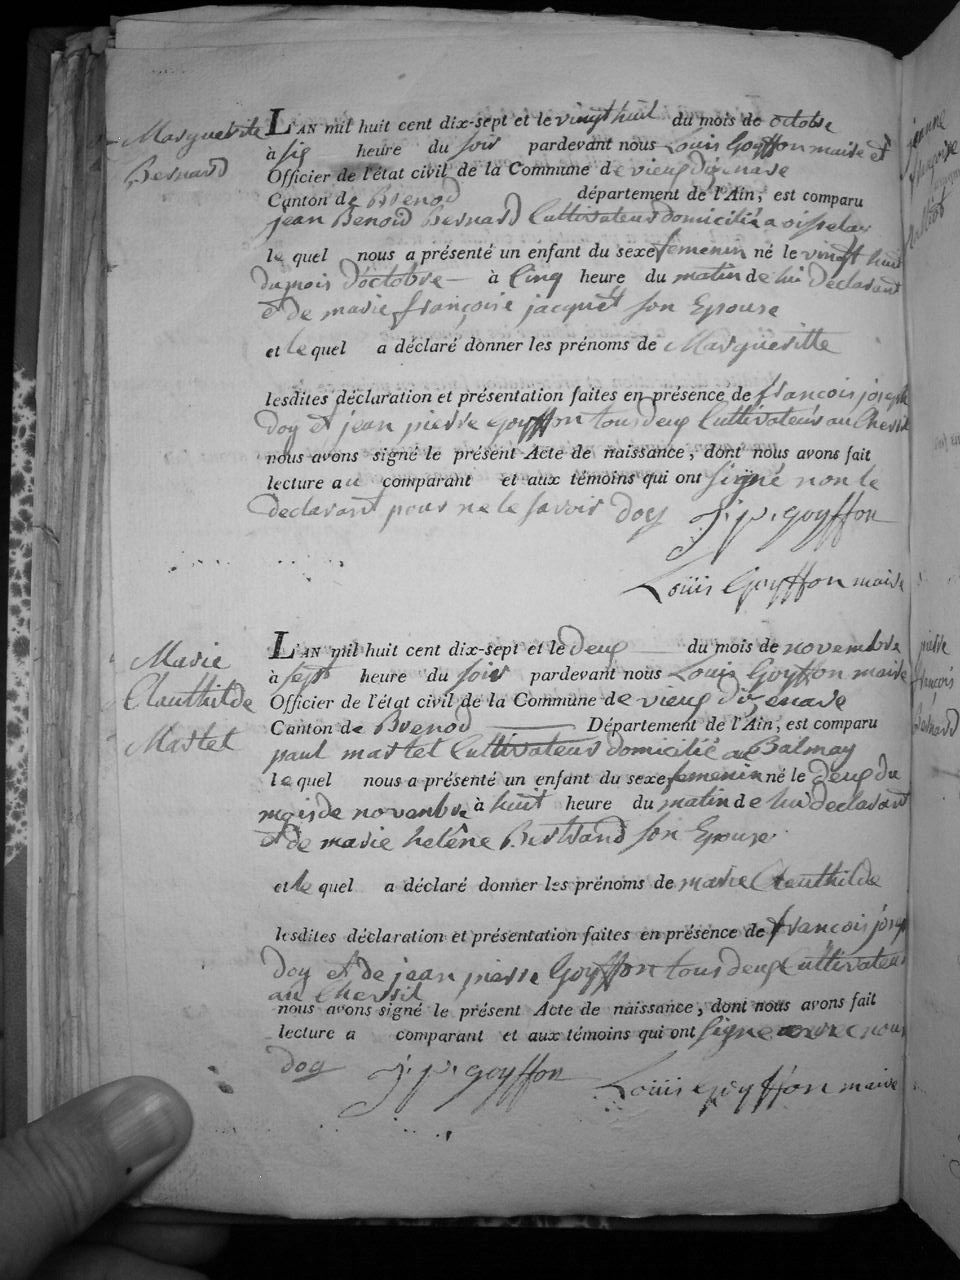 Marguerite
Bernard
L'AN mil huit cent dix-sept et le vingt huit du mois de octobre
à six heure du soir pardevant nous Louis Goyffon maire et
Officier de l'état civil de la Commune de vieux dizenave
Canton de Brenod département de l'Ain; est comparu
jean Benoid Bernard Cultivateur domicilié a oisselaz
le quel nous a présenté un enfant du sexe femenin né le vingt huit
du mois d'octobre à Cinq heure du matin de lui Déclarant
et de marie françoise jacquet son Epouse
et le quel a déclaré donner les prénoms de Margueritte
lesdites déclaration et présentation faites en présence de françois joseph
Doy et jean pierre Goyffon tous deux Cultivateurs au Chevril
nous avons signé le présent Acte de naissance, dont nous avons fait
lecture au comparant et aux témoins qui ont signé non le
Déclarant pour ne le savoir Doy j. p. goyffon
Louis Goyffon maire
Marie
Clauthilde
Martet
L'AN mil huit cent dix-sept et le deux du mois de novembre
à sept heure du soir pardevant nous Louis Goyffon maire
Officier de l'état civil de la Commune de vieux dizenave
Canton de Brenod Département de l'Ain; est comparu
paul martet Cultivateur domicilié au Balmay
le quel nous a présenté un enfant du sexe femenin né le Deux du
mois de novenbre à huit heure du matin de lui déclarant
et de marie helêne Bertrand son Epouse
et le quel a déclaré donner les prénoms de marie Clauthilde
lesdites déclaration et présentation faites en présence de françois josep
Doy et de jean pierre Goyffon tous deux Cultivateur
au Chevril
nous avons signé le présent Acte de naissance, dont nous avons fait
lecture a comparant et aux témoins qui ont signe avec nous
Doy j. p. goyffon Louis Goyffon maire
jeanne
pierre
françois
Bernard